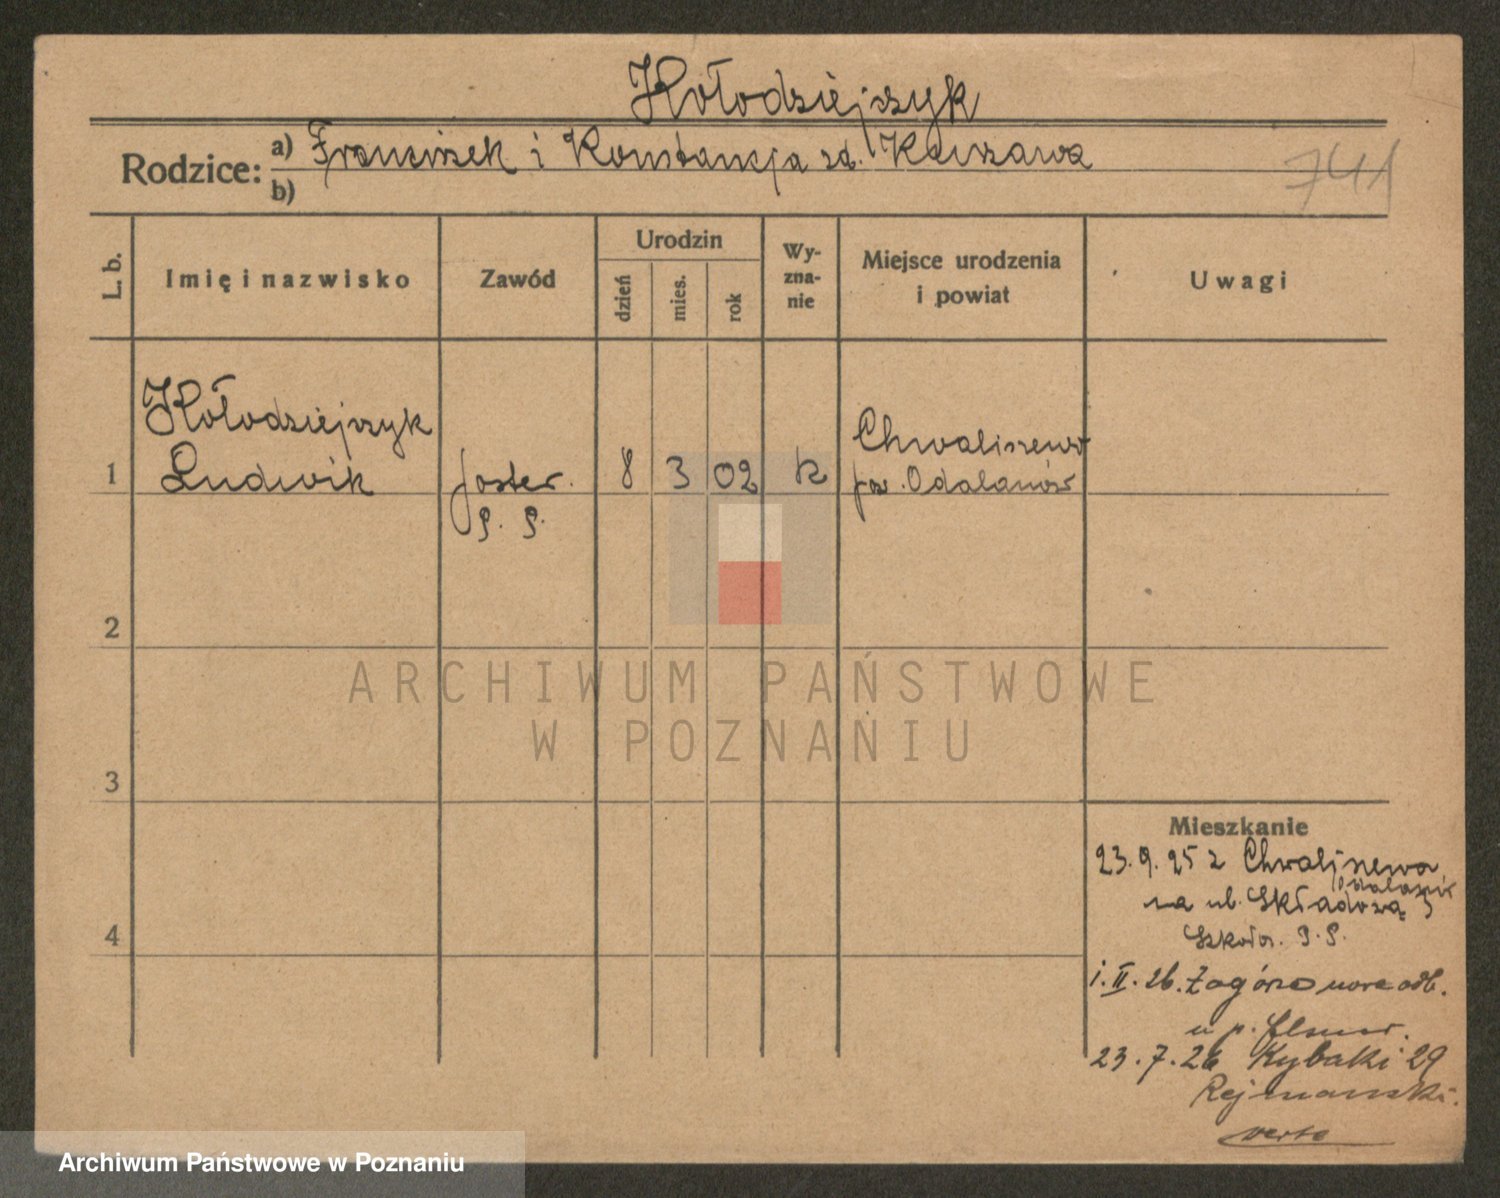 Kołodziejczyk
Rodzice: a) Franciszek i Konstancja zd. Kurzawa
b)
741
L. b.
Imię i nazwisko
Zawód
Urodzin
dzień
mies.
rok
Wy-
zna-
nie
Miejsce urodzenia
i powiat
Uwagi
Kołodziejczyk
1 Ludwik
poster.
P. P.
8 3 02 k
Chwaliszew
pow. Odolanów
2
3
4
Mieszkanie
23.9.25 z Chwaliszewa
Odolanów
na ul. Składową 3
Szkoła. P. P.
1. II. 26. Zagórze nowe odb.
u p.
23.7.26 Rybaki 29
Rejmanski.
verte
ARCHIWUM PAŃSTWOWE
W POZNANIU
Archiwum Państwowe w Poznaniu